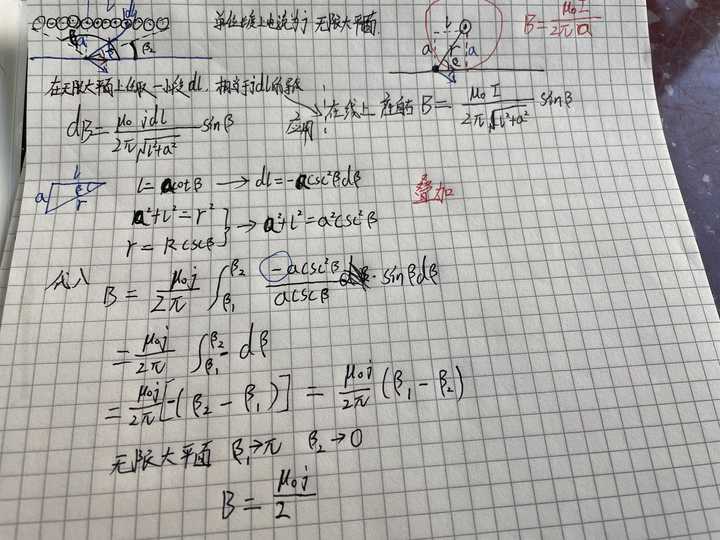 单位长度上电流为j 无限大平面
B=μ₀I/2πa
在无限大平面上任取一小段dl,相当于jdl的导线
dB=μ₀jdl/2π√(l²+a²) sinβ
应用:在线上 产生的B=μ₀I/2π√(l²+a²) sinβ
l=acotβ → dl=-acsc²βdβ
叠加
a²+l²=r²
r=Rcscβ } → a²+l²=a²csc²β
代入 B=μ₀j/2π ∫β₁^β₂ -acsc²β/acscβ · sinβdβ
=μ₀j/2π ∫β₁^β₂ -dβ
=μ₀j/2π[-(β₂-β₁)]=μ₀j/2π(β₁-β₂)
无限大平面 β₁→π β₂→0
B=μ₀j/2